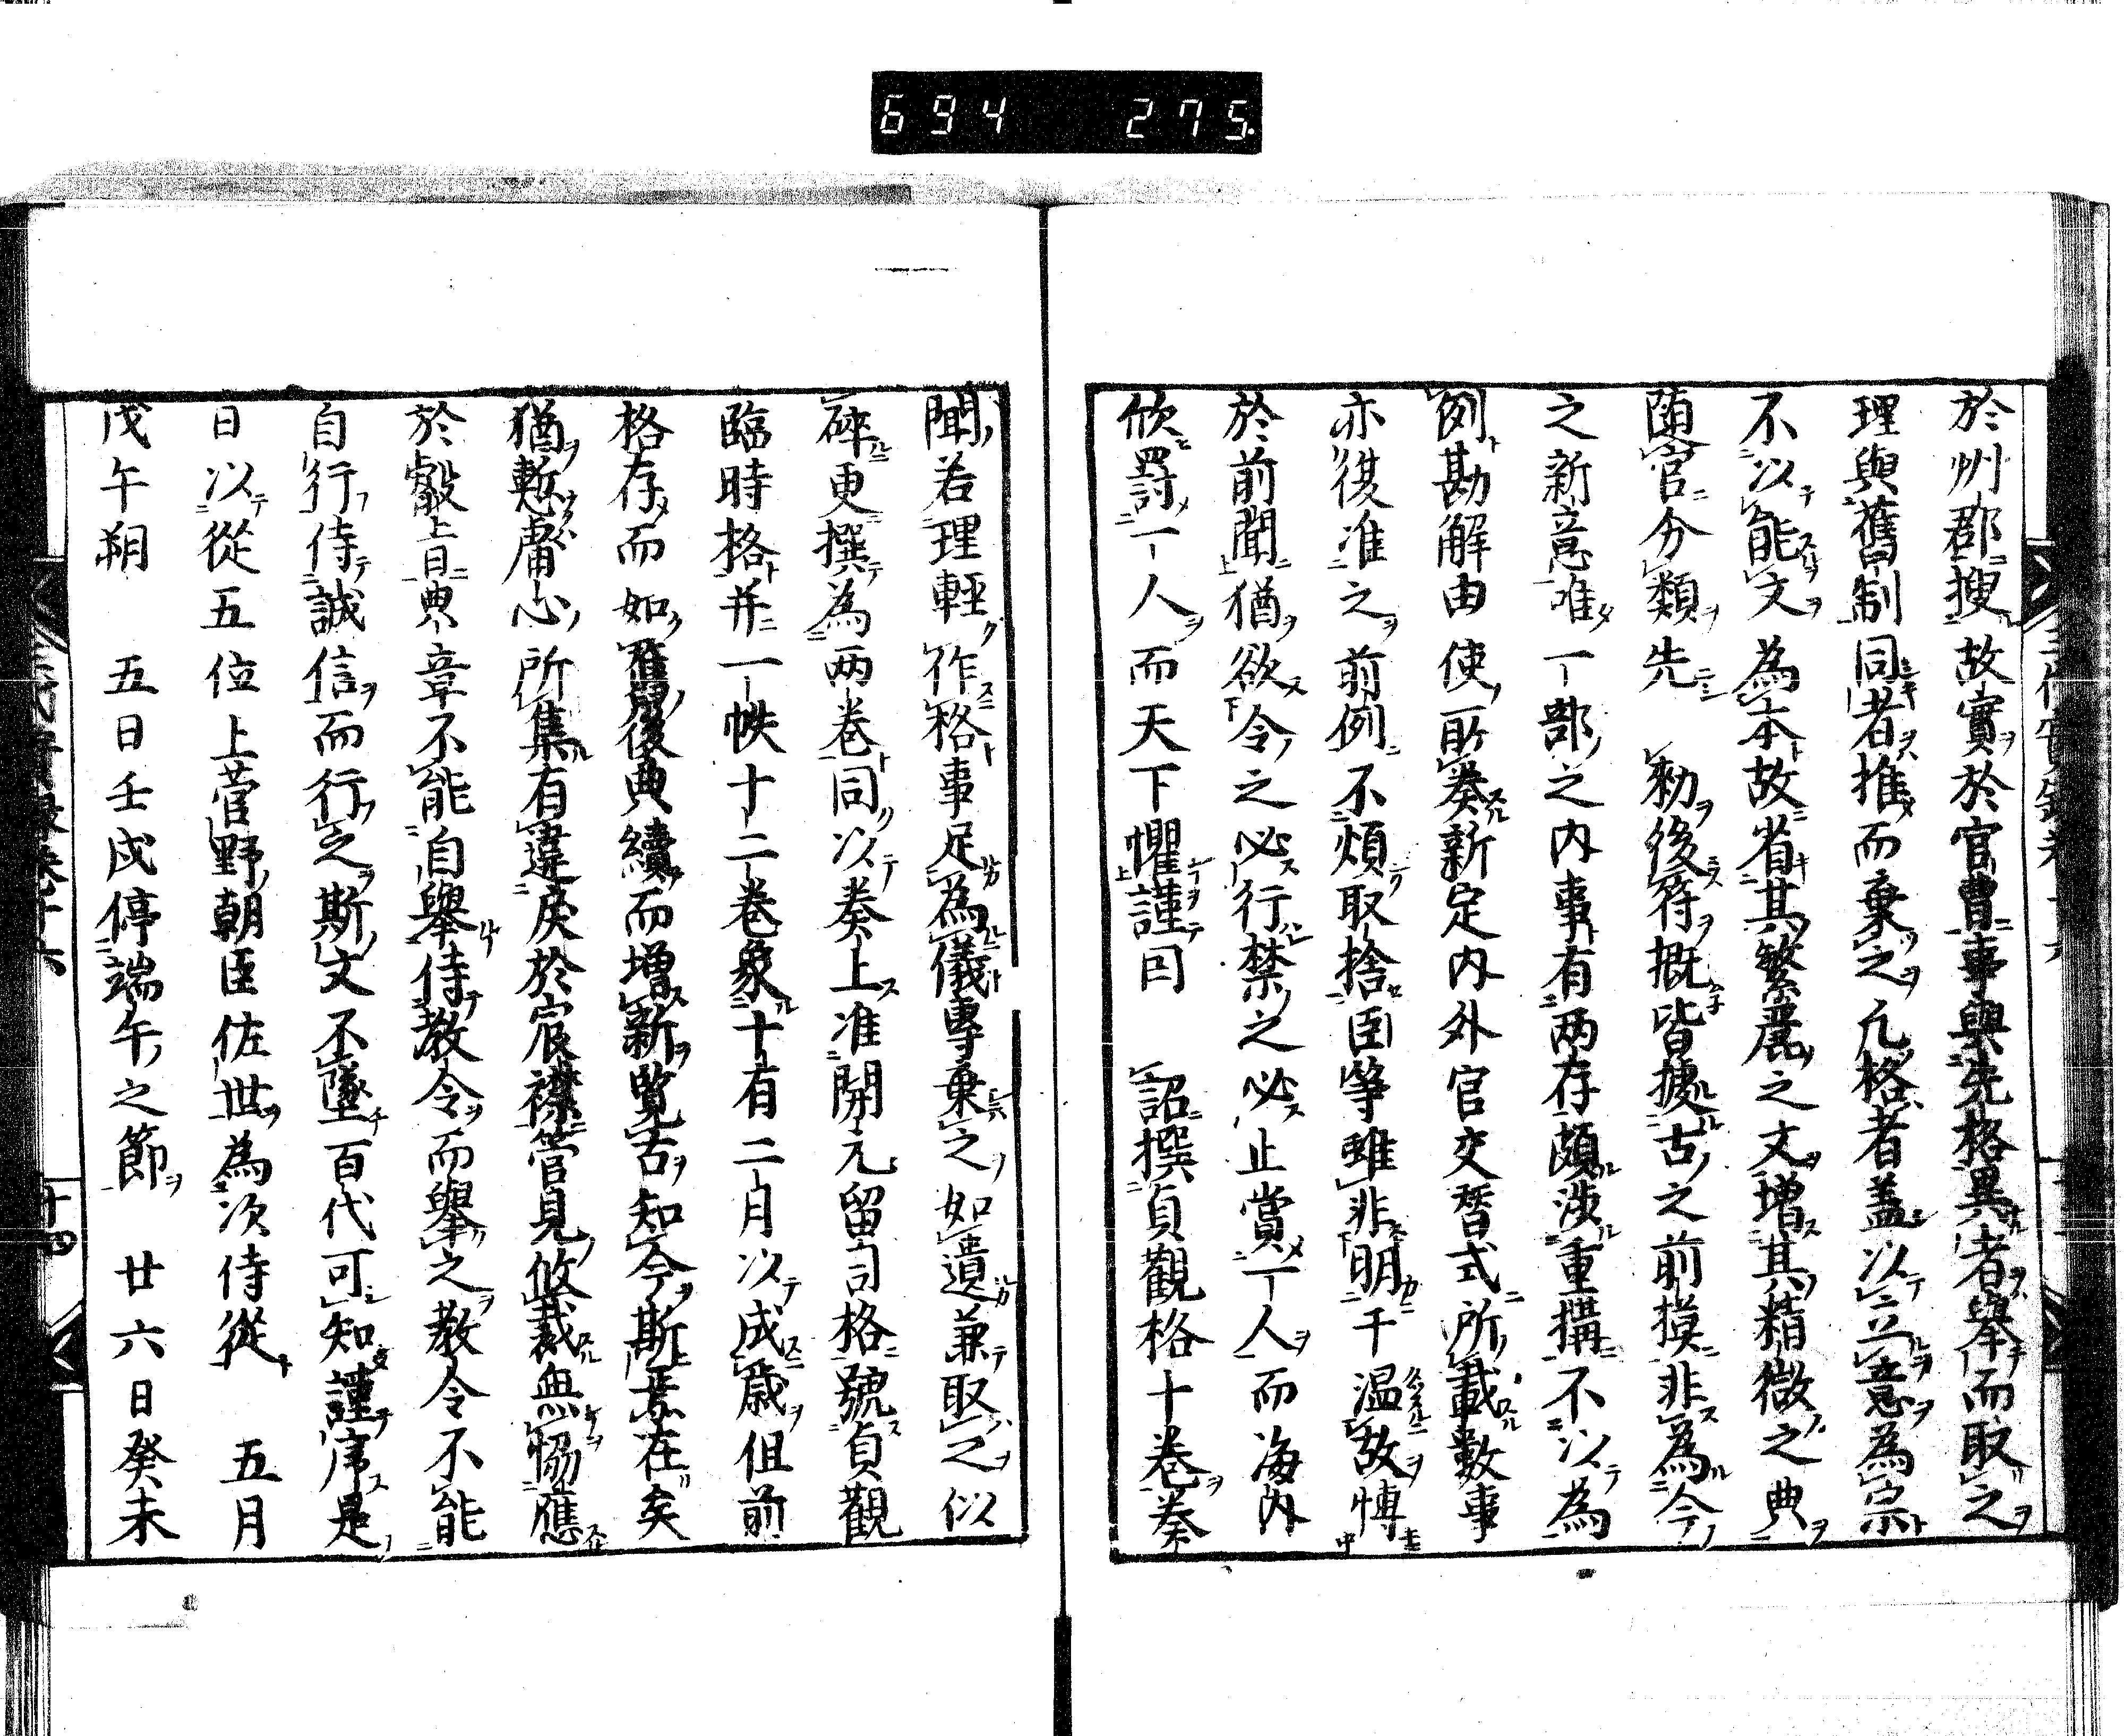 694 275
於州郡搜故實於官曹事與先格異者舉而取之
理與舊制同者推而棄之凡格者蓋以立意為宗
不以能文為本故省其繁麗之文增其精微之典
随官分類先 勅後符概皆據古之前摸非為今
之新意唯一部之内事有两存頗涉重搆不以為
例勘解由使所奏新定内外官交替式所載數事
亦復准之前例不煩取捨臣等雖非明千温故慱
於前聞猶欲令之必行禁之必止賞一人而海内
欣罸一人而天下懼謹曰 詔撰貞觀格十卷奏
聞若理輕作格事足為儀專棄之如遺兼取之似
碎更撰為两卷同以奏上准開元留司格號貞觀
臨時格并一帙十二卷象十有二月以成歳但前
格存而如舊後典續而増新覽古知今斯焉在矣
猶慙庸心所集有違戻於宸襟管見攸裁無恊應
於縠旨典章不能自舉侍教令而舉之教令不能
自行侍誠信而行之斯文不墜百代可知謹序是
日以從五位上菅野朝臣佐世為次侍從 五月
戊午朔 五日壬戌停端午之節 廿六日癸未
十四